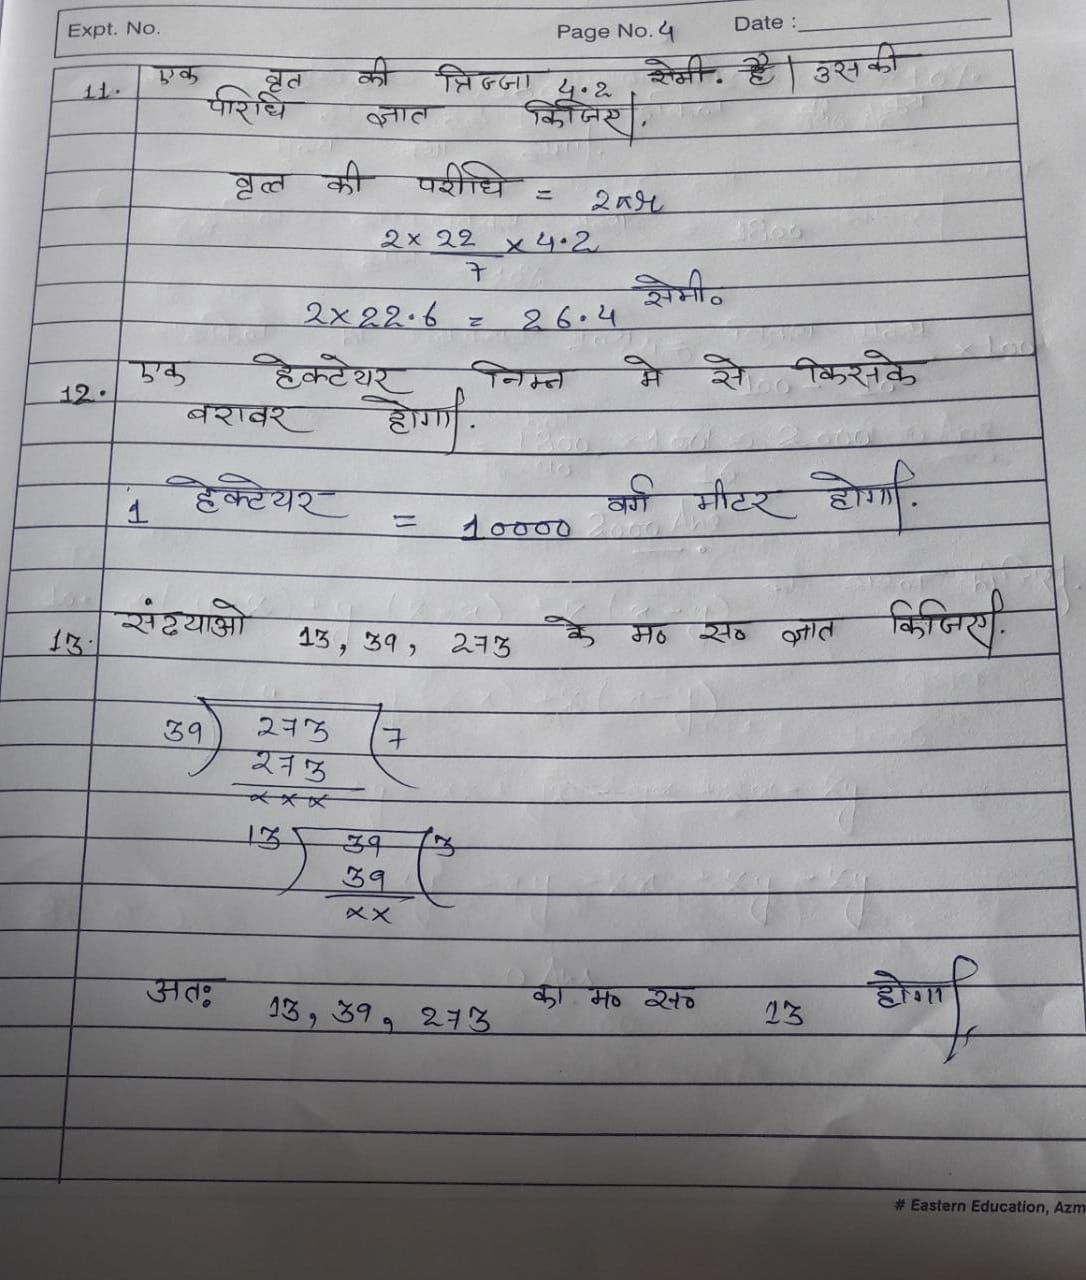 Expt. No.
Page No. 4
Date :
11. एक वृत की त्रिज्जा 4.2 सेमी. है। उसकी
परिधि ज्ञात किजिए।.
वृत्त की परीधि = 2πr
2 × 22/7 × 4.2
2 × 22.6 = 26.4 सेमी०
12. एक हेक्टेयर निम्न मे से किसके
बराबर होगा।.
1 हेक्टेयर = 10000 वर्ग मीटर होगा।.
13. संख्याओ 13, 39, 273 के म० स० ज्ञात किजिए।.
39) 273 (7
273
×××
13) 39 (3
39
××
अतः 13, 39, 273 का म० स० 13 होगा।
# Eastern Education, Azm